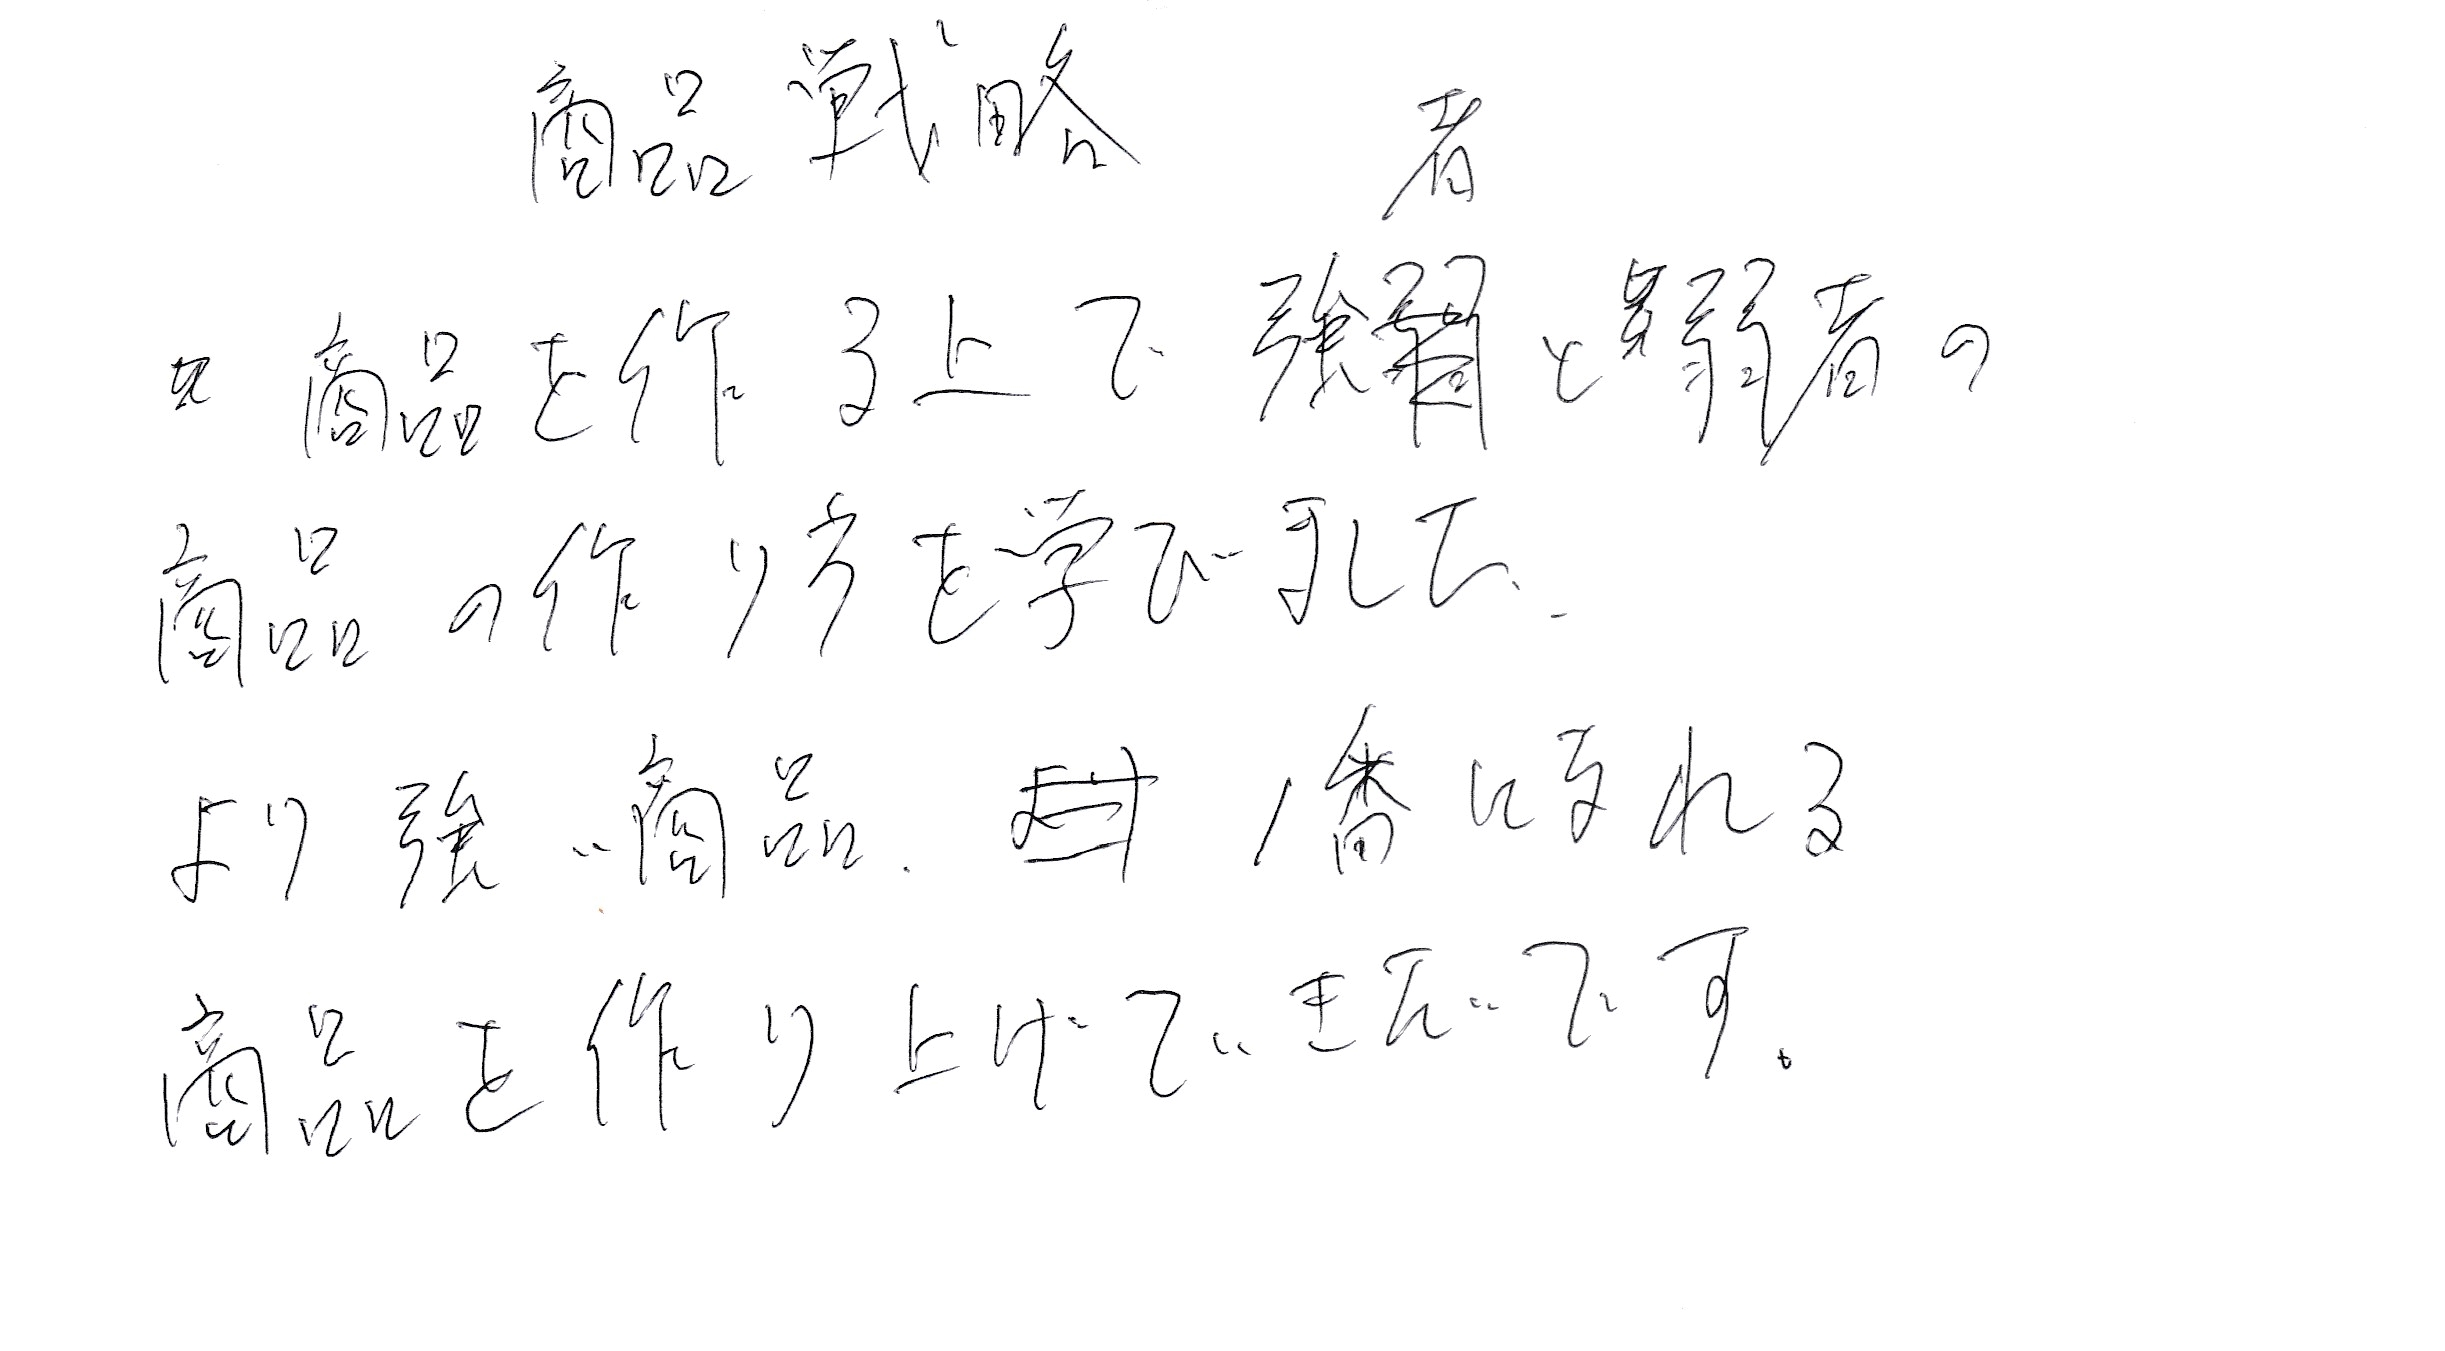 商品戦略
商品を作る上で強者と弱者の
商品の作り方を学びました.
より強い商品. 1番になれる
商品を作り上げていきたいです.